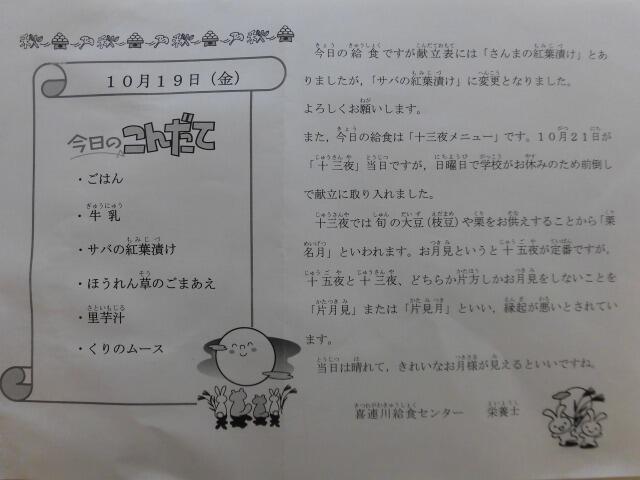 秋 秋 秋 秋
10月19日(金)
今日のこんだて
・ごはん
・牛乳
・サバの紅葉漬け
・ほうれん草のごまあえ
・里芋汁
・くりのムース
今日の給食ですが献立表には「さんまの紅葉漬け」とあ
りましたが,「サバの紅葉漬け」に変更となりました。
よろしくお願いします。
また,今日の給食は「十三夜メニュー」です。10月21日が
「十三夜」当日ですが,日曜日で学校がお休みのため前倒し
で献立に取り入れました。
十三夜では旬の大豆(枝豆)や栗をお供えすることから「栗
名月」といわれます。お月見というと十五夜が定番ですが,
十五夜と十三夜、どちらか片方しかお月見をしないことを
「片月見」または「片見月」といい,縁起が悪いとされてい
ます。
当日は晴れて,きれいなお月様が見えるといいですね。
喜連川給食センター 栄養士